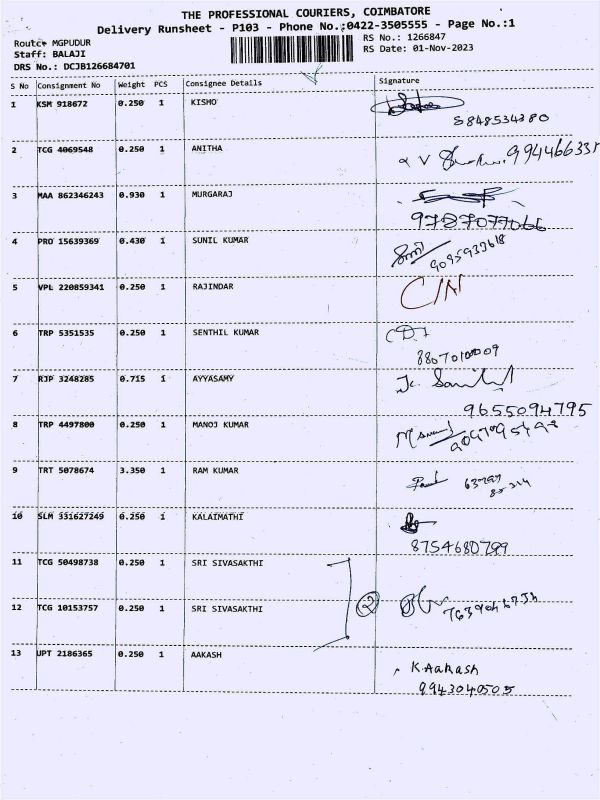 THE PROFESSIONAL COURIERS, COIMBATORE
Delivery Runsheet - P103 - Phone No.:0422-3505555 - Page No.:1
Route: MGPUDUR
RS No.: 1266847
Staff: BALAJI
RS Date: 01-Nov-2023
DRS No.: DCJB126684701
S No Consignment No Weight PCS Consignee Details Signature
1 KSM 918672 0.250 1 KISMO
8848534380
2 TCG 4069548 0.250 1 ANITHA
3 MAA 862346243 0.930 1 MURGARAJ
9787077066
4 PRO 15639369 0.430 1 SUNIL KUMAR
9095937618
5 VPL 220859341 0.250 1 RAJINDAR
6 TRP 5351535 0.250 1 SENTHIL KUMAR
8807010009
7 RJP 3248285 0.715 1 AYYASAMY
9655094795
8 TRP 4497800 0.250 1 MANOJ KUMAR
9 TRT 5078674 3.350 1 RAM KUMAR
10 SLM 331627249 0.250 1 KALAIMATHI
8754680799
11 TCG 50498738 0.250 1 SRI SIVASAKTHI
2
12 TCG 10153757 0.250 1 SRI SIVASAKTHI
13 UPT 2186365 0.250 1 AAKASH
K.AaKASH
9943040505